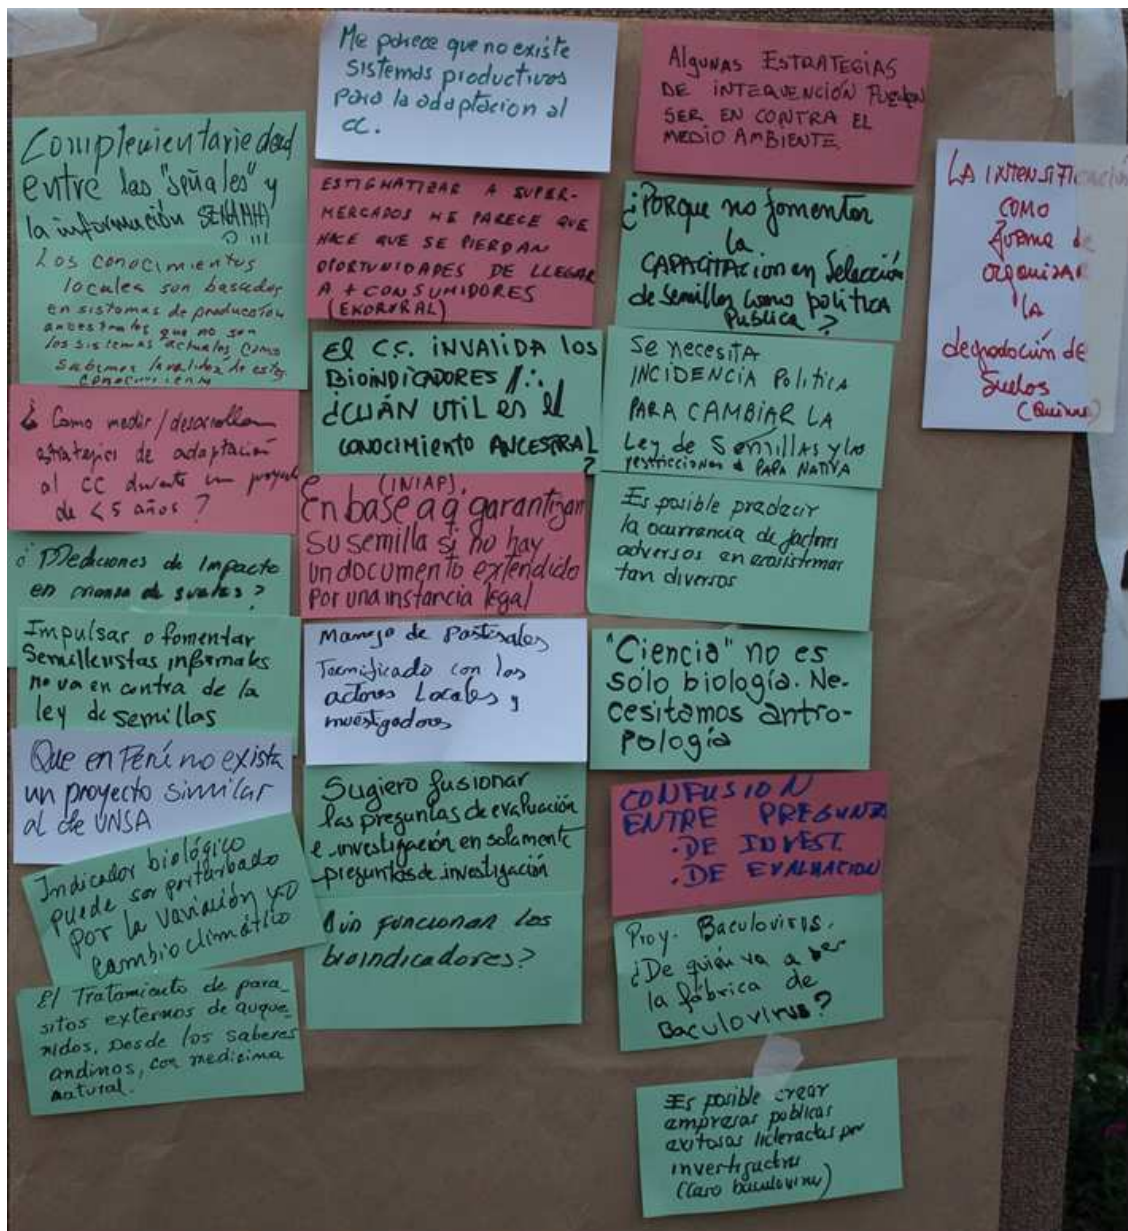 Complementariedad
entre las "señales" y
la información SENAMHI
? !!!
Los conocimientos
locales son basados
en sistemas de producción
ancestrales que no son
los sistemas actuales. Como
sabemos la validez de estos
conocimiento
¿Como medir/desarrollar
estrategias de adaptación
al CC durante un proyecto
de <5 años?
¿Mediciones de Impacto
en crianza de suelos?
Impulsar o fomentar
Semilleristas informales
no va en contra de la
ley de semillas
Que en Perú no exista
un proyecto similar
al de UNSA
Indicador biológico
puede ser perturbado
por la variación y/o
cambio climático
El Tratamiento de para_
sitos externos de auque_
nidos, Desde los saberes
andinos, con medicina
natural.
Me parece que no existe
sistemas productivos
para la adaptacion al
CC.
ESTIGMATIZAR A SUPER-
MERCADOS ME PARECE QUE
HACE QUE SE PIERDAN
OPORTUNIDADES DE LLEGAR
A + CONSUMIDORES
(EKORURAL)
El C.C. INVALIDA los
BIOINDICADORES /∴
¿CUÁN UTIL es el
CONOCIMIENTO ANCESTRAL
?
(INIAP).
En base a q garantizan
su semilla si no hay
un documento extendido
por una instancia legal
Manejo de Pastizales
Tecnificado con los
actores Locales y
investigadores
Sugiero fusionar
las preguntas de evaluación
e investigación en solamente
preguntas de investigación
Aún funcionan los
bioindicadores?
Algunas ESTRATEGIAS
DE INTERVENCIÓN PUEDEN
SER EN CONTRA EL
MEDIO AMBIENTE
¿Porque no fomentar
la
CAPACITACION en Selección
de semillas como politica
Publica?
Se necesita
INCIDENCIA Politica
PARA CAMBIAR LA
Ley de Semillas y las
restricciones a PAPA NATIVA
Es posible predecir
la ocurrencia de factores
adversos en ecosistemas
tan diversos
"Ciencia" no es
sólo biología. Ne-
cesitamos antro-
pología
CONFUSION
ENTRE PREGUNTAS
. DE INVEST.
. DE EVALUACION
Proy. Baculovirus.
¿De quién va a ser
la fábrica de
Baculovirus?
Es posible crear
empresas publicas
exitosas lideradas por
investigadores
(Caso baculovirus)
LA INTENSIFICACIÓN
COMO
forma de
organizar
la
degradación de
Suelos
(Quinua)